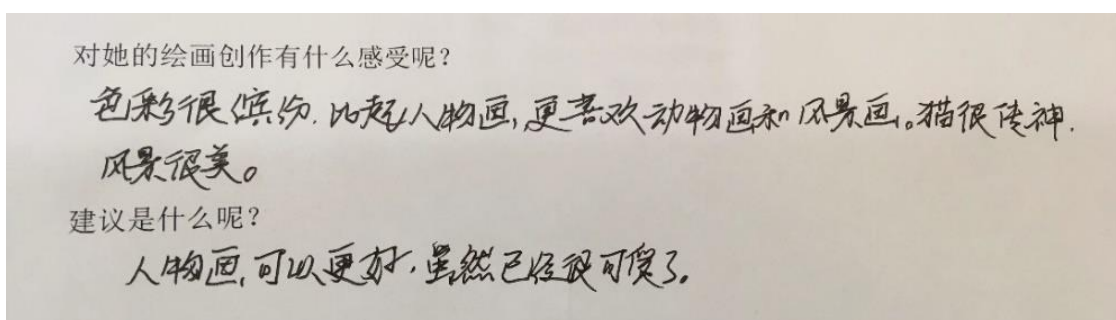 对她的绘画创作有什么感受呢？
色彩很缤纷.比起人物画,更喜欢动物画和风景画。猫很传神.
风景很美。
建议是什么呢？
人物画,可以更好.虽然已经很可爱了。